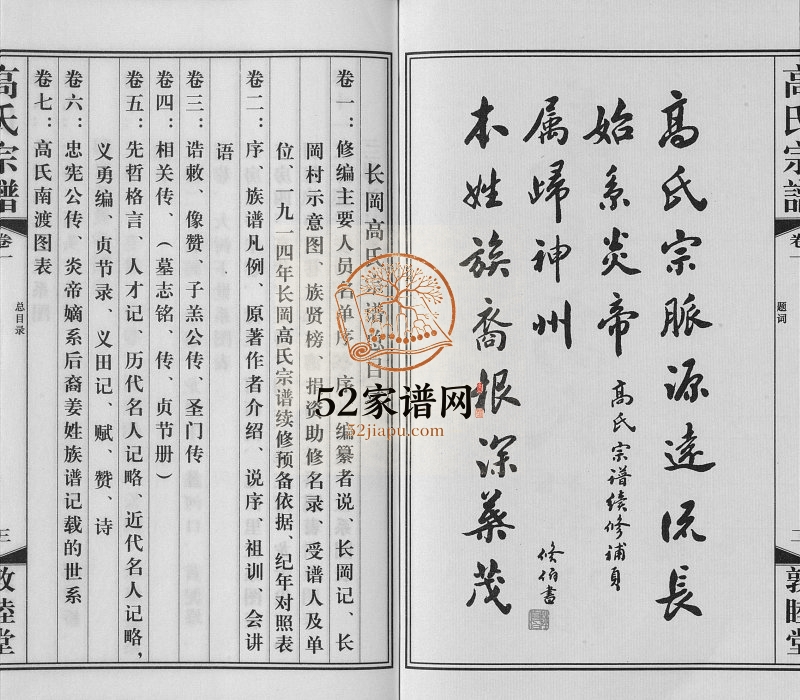 高氏宗譜
卷一
题词
二
敦睦堂
高氏宗脈源遠流長
始系炎帝
属歸神州
本姓族裔根深葉茂
高氏宗谱续修補頁
修伯書
长岡高氏宗谱总目录
卷一：修编主要人员名单序、序、编纂者说、长岡记、长
岡村示意图、族贤榜、捐资助修名录、受谱人及单
位、一九一四年长岡高氏宗谱续修预备依据、纪年对照表
卷二：序、族谱凡例、原著作者介绍、说序、祖训、会讲
语
卷三：诰敕、像赞、子羔公传、圣门传
卷四：相关传、（墓志铭、传、贞节册）
卷五：先哲格言、人才记、历代名人记略、近代名人记略，
义勇编、贞节录、义田记、赋、赞、诗
卷六：忠宪公传、炎帝嫡系后裔姜姓族谱记载的世系
卷七：高氏南渡图表
高氏宗譜
卷一
总目录
三
敦睦堂
52家谱网
52jiapu.com